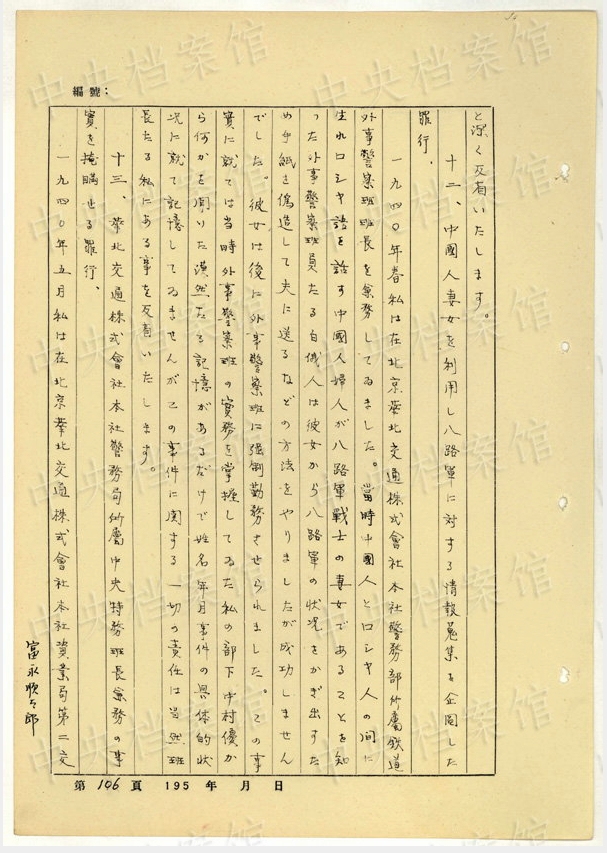 編號：
と深く反省いたします。
十二、中國人妻女を利用し八路軍に対する情報蒐集を企圖した
罪行、
一九四〇年春私は在北京華北交通株式會社本社警務部所屬鉄道
外事警察班班長を兼務してゐました。當時中國人とロシヤ人の間に
生れロシヤ語を話す中國人婦人が八路軍戰士の妻女であることを知
った外事警察班員たる白俄人は彼女から八路軍の状況をかぎ出すた
め手紙を偽造して夫に送るなどの方法をやりましたが成功しません
でした。彼女は後に外事警察班に强制勤務させられました。この事
實に就ては当時外事警察班の實務を掌握してゐた私の部下中村優か
ら何かを聞いた漠然たる記憶があるだけで姓名年月事件の具体的状
況に就て記憶してゐませんがこの事件に関する一切の責任は当然班
長たる私にある事を反省いたします。
十三、華北交通株式會社本社警務局所屬中央特務班長兼務の事
實を掩瞞せる罪行、
一九四〇年五月私は在北京華北交通株式會社本社資業局第二交
富永順太郎
第 106 頁 195 年 月 日
中央档案馆